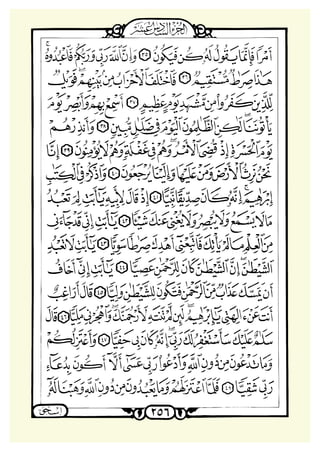 الجزء السادس عشر
أَمْرًا فَإِنَّمَا يَقُولُ لَهُۥ كُن فَيَكُونُ ٣٥ وَإِنَّ ٱللَّهَ رَبِّى وَرَبُّكُمْ فَٱعْبُدُوهُ
هَـٰذَا صِرَٰطٌ مُّسْتَقِيمٌ ٣٦ فَٱخْتَلَفَ ٱلْأَحْزَابُ مِنۢ بَيْنِهِمْ فَوَيْلٌ
لِّلَّذِينَ كَفَرُوا۟ مِن مَّشْهَدِ يَوْمٍ عَظِيمٍ ٣٧ أَسْمِعْ بِهِمْ وَأَبْصِرْ يَوْمَ
يَأْتُونَنَا لَـٰكِنِ ٱلظَّـٰلِمُونَ ٱلْيَوْمَ فِى ضَلَـٰلٍ مُّبِينٍ ٣٨ وَأَنذِرْهُمْ
يَوْمَ ٱلْحَسْرَةِ إِذْ قُضِىَ ٱلْأَمْرُ وَهُمْ فِى غَفْلَةٍ وَهُمْ لَا يُؤْمِنُونَ ٣٩ إِنَّا
نَحْنُ نَرِثُ ٱلْأَرْضَ وَمَنْ عَلَيْهَا وَإِلَيْنَا يُرْجَعُونَ ٤٠ وَٱذْكُرْ فِى ٱلْكِتَـٰبِ
إِبْرَٰهِيمَ إِنَّهُۥ كَانَ صِدِّيقًا نَّبِيًّا ٤١ إِذْ قَالَ لِأَبِيهِ يَـٰٓأَبَتِ لِمَ تَعْبُدُ
مَا لَا يَسْمَعُ وَلَا يُبْصِرُ وَلَا يُغْنِى عَنكَ شَيْـًٔا ٤٢ يَـٰٓأَبَتِ إِنِّى قَدْ جَآءَنِى
مِنَ ٱلْعِلْمِ مَا لَمْ يَأْتِكَ فَٱتَّبِعْنِىٓ أَهْدِكَ صِرَٰطًا سَوِيًّا ٤٣ يَـٰٓأَبَتِ لَا تَعْبُدِ
ٱلشَّيْطَـٰنَ إِنَّ ٱلشَّيْطَـٰنَ كَانَ لِلرَّحْمَـٰنِ عَصِيًّا ٤٤ يَـٰٓأَبَتِ إِنِّىٓ أَخَافُ
أَن يَمَسَّكَ عَذَابٌ مِّنَ ٱلرَّحْمَـٰنِ فَتَكُونَ لِلشَّيْطَـٰنِ وَلِيًّا ٤٥ قَالَ أَرَاغِبٌ
أَنتَ عَنْ ءَالِهَتِى يَـٰٓإِبْرَٰهِيمُ لَئِن لَّمْ تَنتَهِ لَأَرْجُمَنَّكَ وَٱهْجُرْنِى مَلِيًّا ٤٦ قَالَ
سَلَـٰمٌ عَلَيْكَ سَأَسْتَغْفِرُ لَكَ رَبِّىٓ إِنَّهُۥ كَانَ بِى حَفِيًّا ٤٧ وَأَعْتَزِلُكُمْ
وَمَا تَدْعُونَ مِن دُونِ ٱللَّهِ وَأَدْعُوا۟ رَبِّى عَسَىٰٓ أَلَّآ أَكُونَ بِدُعَآءِ
رَبِّى شَقِيًّا ٤٨ فَلَمَّا ٱعْتَزَلَهُمْ وَمَا يَعْبُدُونَ مِن دُونِ ٱللَّهِ وَهَبْنَا لَهُۥٓ
٢٥٦
إسحق